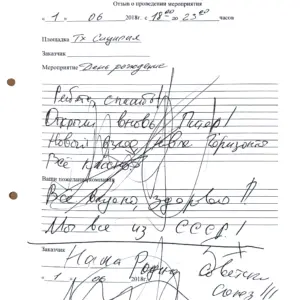 Отзыв о проведении мероприятия
« 1 » 06 2018г. с 18⁰⁰ до 23⁰⁰ часов
Площадка Тх Сицилия
Заказчик
Мероприятие День рождение
Ребята, спасибо!
Открыли вновь Питер!
Новой взгляд, новые Горизонты
Всё классно!
Ваши пожелания компании
Всё вкусно, здорово!!
Мы все из СССР!
Заказчик Наша Родина
« 1 » 06 2018г. Советский
Союз!!!